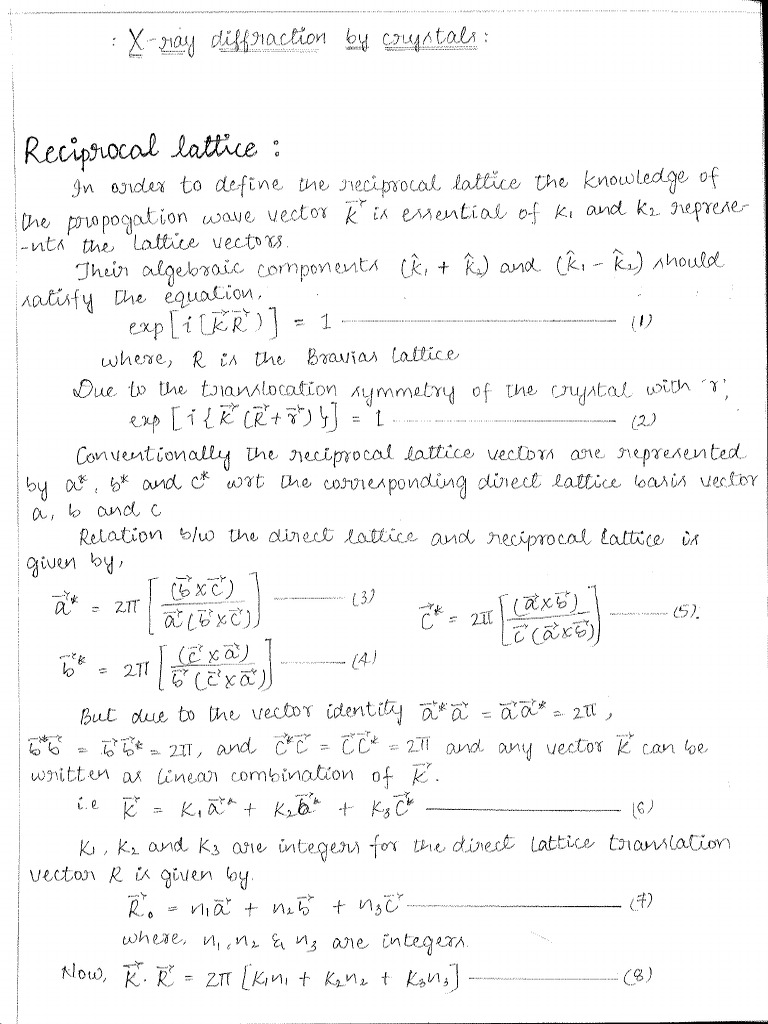 : X-ray diffraction by crystals :
Reciprocal lattice :
In order to define the reciprocal lattice the knowledge of
the propogation wave vector K⃗ is essential of K₁ and K₂ represe-
-nts the lattice vectors.
Their algebraic components (k̂₁ + k̂₂) and (k̂₁ - k̂₂) should
satisfy the equation,
exp[i[K⃗R⃗)] = 1 ——— (1)
where, R is the Bravias lattice
Due to the translocation symmetry of the crystal with 'r',
exp [i{K⃗(R⃗+r⃗)}] = 1 ——— (2)
Conventionally the reciprocal lattice vectors are represented
by a*, b* and c* wrt the corresponding direct lattice basis vector
a, b and c
Relation b/w the direct lattice and reciprocal lattice is
given by,
a⃗* = 2π [(b⃗×c⃗) / a⃗(b⃗×c⃗)] ——— (3)
c⃗* = 2π [(a⃗×b⃗) / c⃗(a⃗×b⃗)] ——— (5).
b⃗* = 2π [(c⃗×a⃗) / b⃗(c⃗×a⃗)] ——— (4)
But due to the vector identity a⃗*a⃗ = a⃗a⃗* = 2π,
b⃗*b⃗ = b⃗b⃗* = 2π, and c⃗*c⃗ = c⃗c⃗* = 2π and any vector K⃗ can be
written as linear combination of K⃗.
i.e K⃗ = K₁a⃗* + K₂b⃗* + K₃c⃗* ——— (6)
K₁, K₂ and K₃ are integers for the direct lattice translation
vector R is given by.
R⃗₀ = n₁a⃗ + n₂b⃗ + n₃c⃗ ——— (7)
where, n₁, n₂ & n₃ are integers.
Now, K⃗. R⃗ = 2π [K₁n₁ + K₂n₂ + K₃n₃] ——— (8)